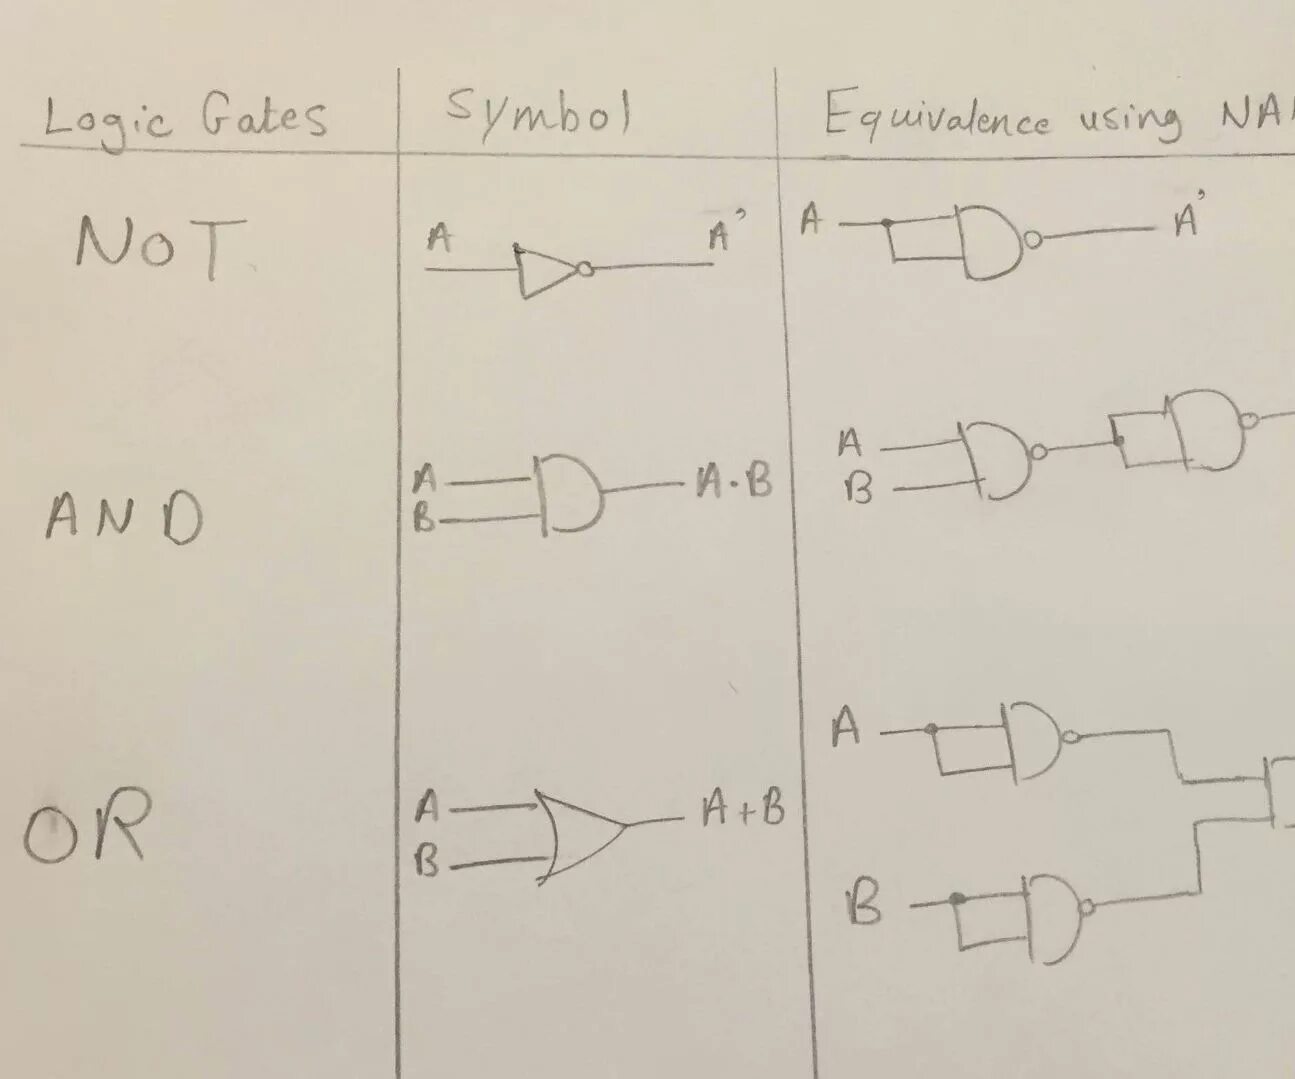 Logic Gates Symbol Equivalence using NA
NOT A A' A A'
AND A B A·B A B
OR A B A+B A B